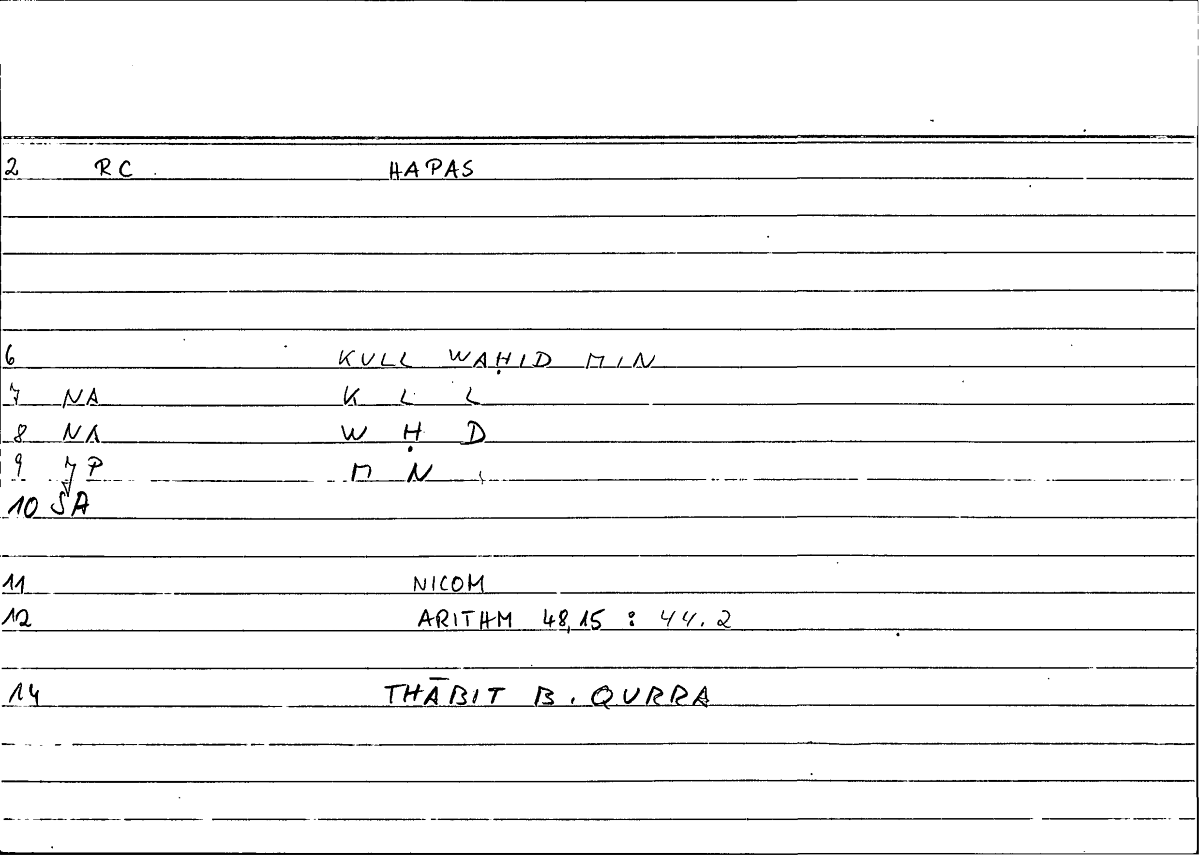 2 RC HAPAS
6 KULL WAḤID MIN
7 NA K L L
8 NA W Ḥ D
9 JP M N
10 SA
11 NICOM
12 ARITHM 48,15 : 44.2
14 THĀBIT B. QURRA